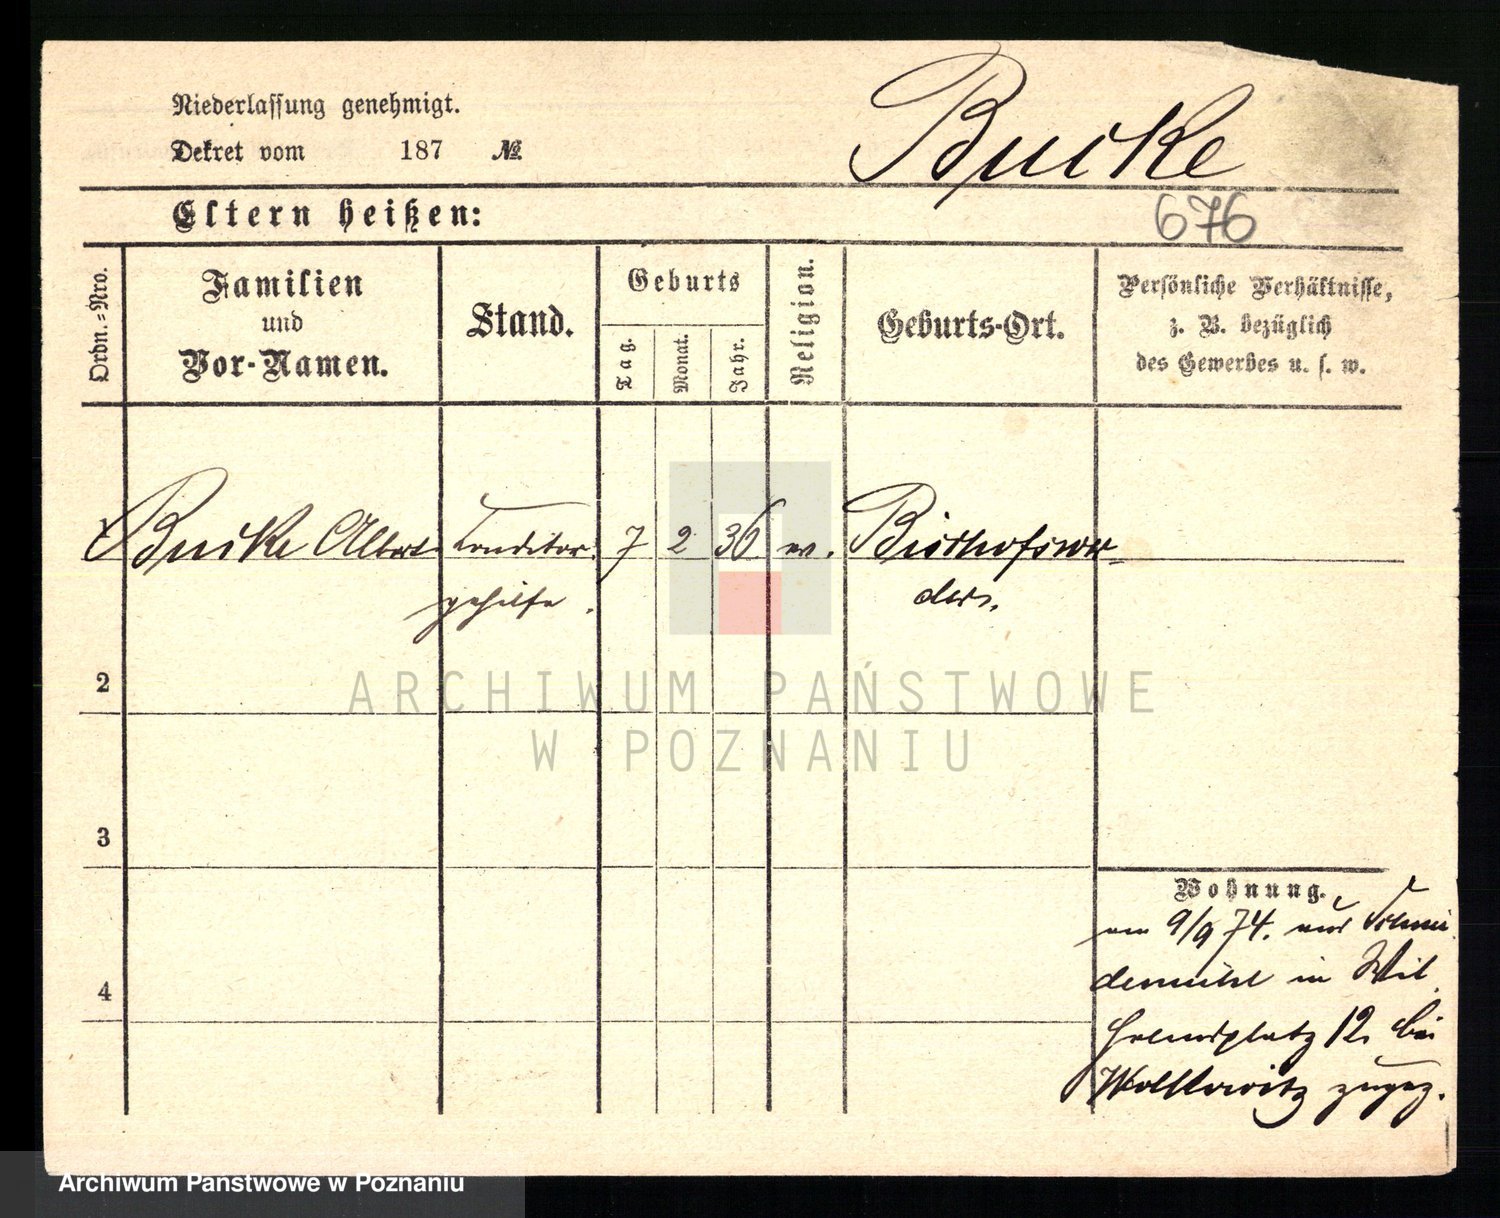 Niederlassung genehmigt.
Dekret vom 187 №
Bucke
Eltern heißen:
676
Ordn.-Nro.
Familien
und
Vor-Namen.
Stand.
Geburts
Tag.
Monat.
Jahr.
Religion.
Geburts-Ort.
Persönliche Verhältnisse,
z. B. bezüglich
des Gewerbes u. s. w.
1 Bucke Albert Conditor 7 2 36 ev. Bischofswer
gehilfe. ders.
2
3
4
Wohnung.
am 9/9 74. aus Schnei
demühl in Wil
helmsplatz 12 bei
zugez.
ARCHIWUM PAŃSTWOWE
W POZNANIU
Archiwum Państwowe w Poznaniu